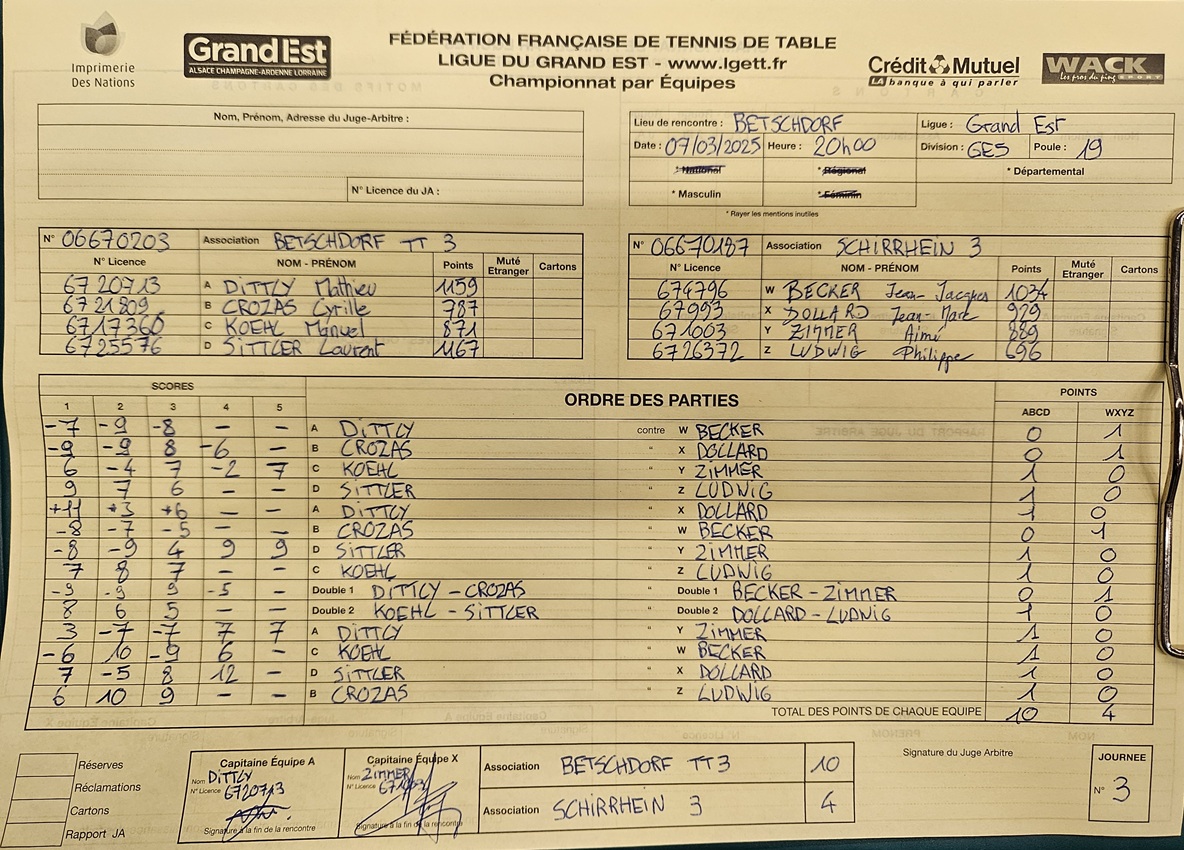 Imprimerie
Des Nations
GrandEst
ALSACE CHAMPAGNE-ARDENNE LORRAINE
FÉDÉRATION FRANÇAISE DE TENNIS DE TABLE
LIGUE DU GRAND EST - www.lgett.fr
Championnat par Équipes
Crédit Mutuel
LA banque à qui parler
WACK
Les pros du ping SPORT
Nom, Prénom, Adresse du Juge-Arbitre :
N° Licence du JA :
Lieu de rencontre : BETSCHDORF Ligue : Grand Est
Date : 07/03/2025 Heure : 20h00 Division : GE5 Poule : 19
* National * Régional * Départemental
* Masculin * Féminin
* Rayer les mentions inutiles
N° 06670203 Association BETSCHDORF TT 3
N° Licence NOM - PRÉNOM Points Muté Etranger Cartons
6720713 A DITTLY Mathieu 1159
6721809 B CROZAS Cyrille 787
6717360 C KOEHL Manuel 871
6725576 D SITTLER Laurent 1167
N° 06670187 Association SCHIRRHEIN 3
N° Licence NOM - PRÉNOM Points Muté Etranger Cartons
674796 W BECKER Jean-Jacques 1034
67993 X DOLLARD Jean-Marc 929
671003 Y ZIMMER Aimé 889
6726372 Z LUDWIG Philippe 696
SCORES ORDRE DES PARTIES POINTS
1 2 3 4 5 ABCD WXYZ
-7 -9 -8 - - A DITTLY contre W BECKER 0 1
-9 -9 8 -6 - B CROZAS " X DOLLARD 0 1
6 -4 7 -2 7 C KOEHL " Y ZIMMER 1 0
9 7 6 - - D SITTLER " Z LUDWIG 1 0
+11 +3 +6 - - A DITTLY " X DOLLARD 1 0
-8 -7 -5 - - B CROZAS " W BECKER 0 1
-8 -9 4 9 9 D SITTLER " Y ZIMMER 1 0
7 8 7 - - C KOEHL " Z LUDWIG 1 0
-9 9 -5 - Double 1 DITTLY - CROZAS " Double 1 BECKER - ZIMMER 0 1
8 6 5 - - Double 2 KOEHL - SITTLER " Double 2 DOLLARD - LUDWIG 1 0
3 -7 -7 7 7 A DITTLY " Y ZIMMER 1 0
-6 10 -9 6 - C KOEHL " W BECKER 1 0
7 -5 8 12 - D SITTLER " X DOLLARD 1 0
6 10 9 - - B CROZAS " Z LUDWIG 1 0
TOTAL DES POINTS DE CHAQUE EQUIPE 10 4
Réserves
Réclamations
Cartons
Rapport JA
Capitaine Équipe A
Nom DITTLY
N° Licence 6720713
Signature à la fin de la rencontre
Capitaine Équipe X
Nom ZIMMER
N° Licence
Signature à la fin de la rencontre
Association BETSCHDORF TT3 10
Association SCHIRRHEIN 3 4
Signature du Juge Arbitre
JOURNEE
N° 3